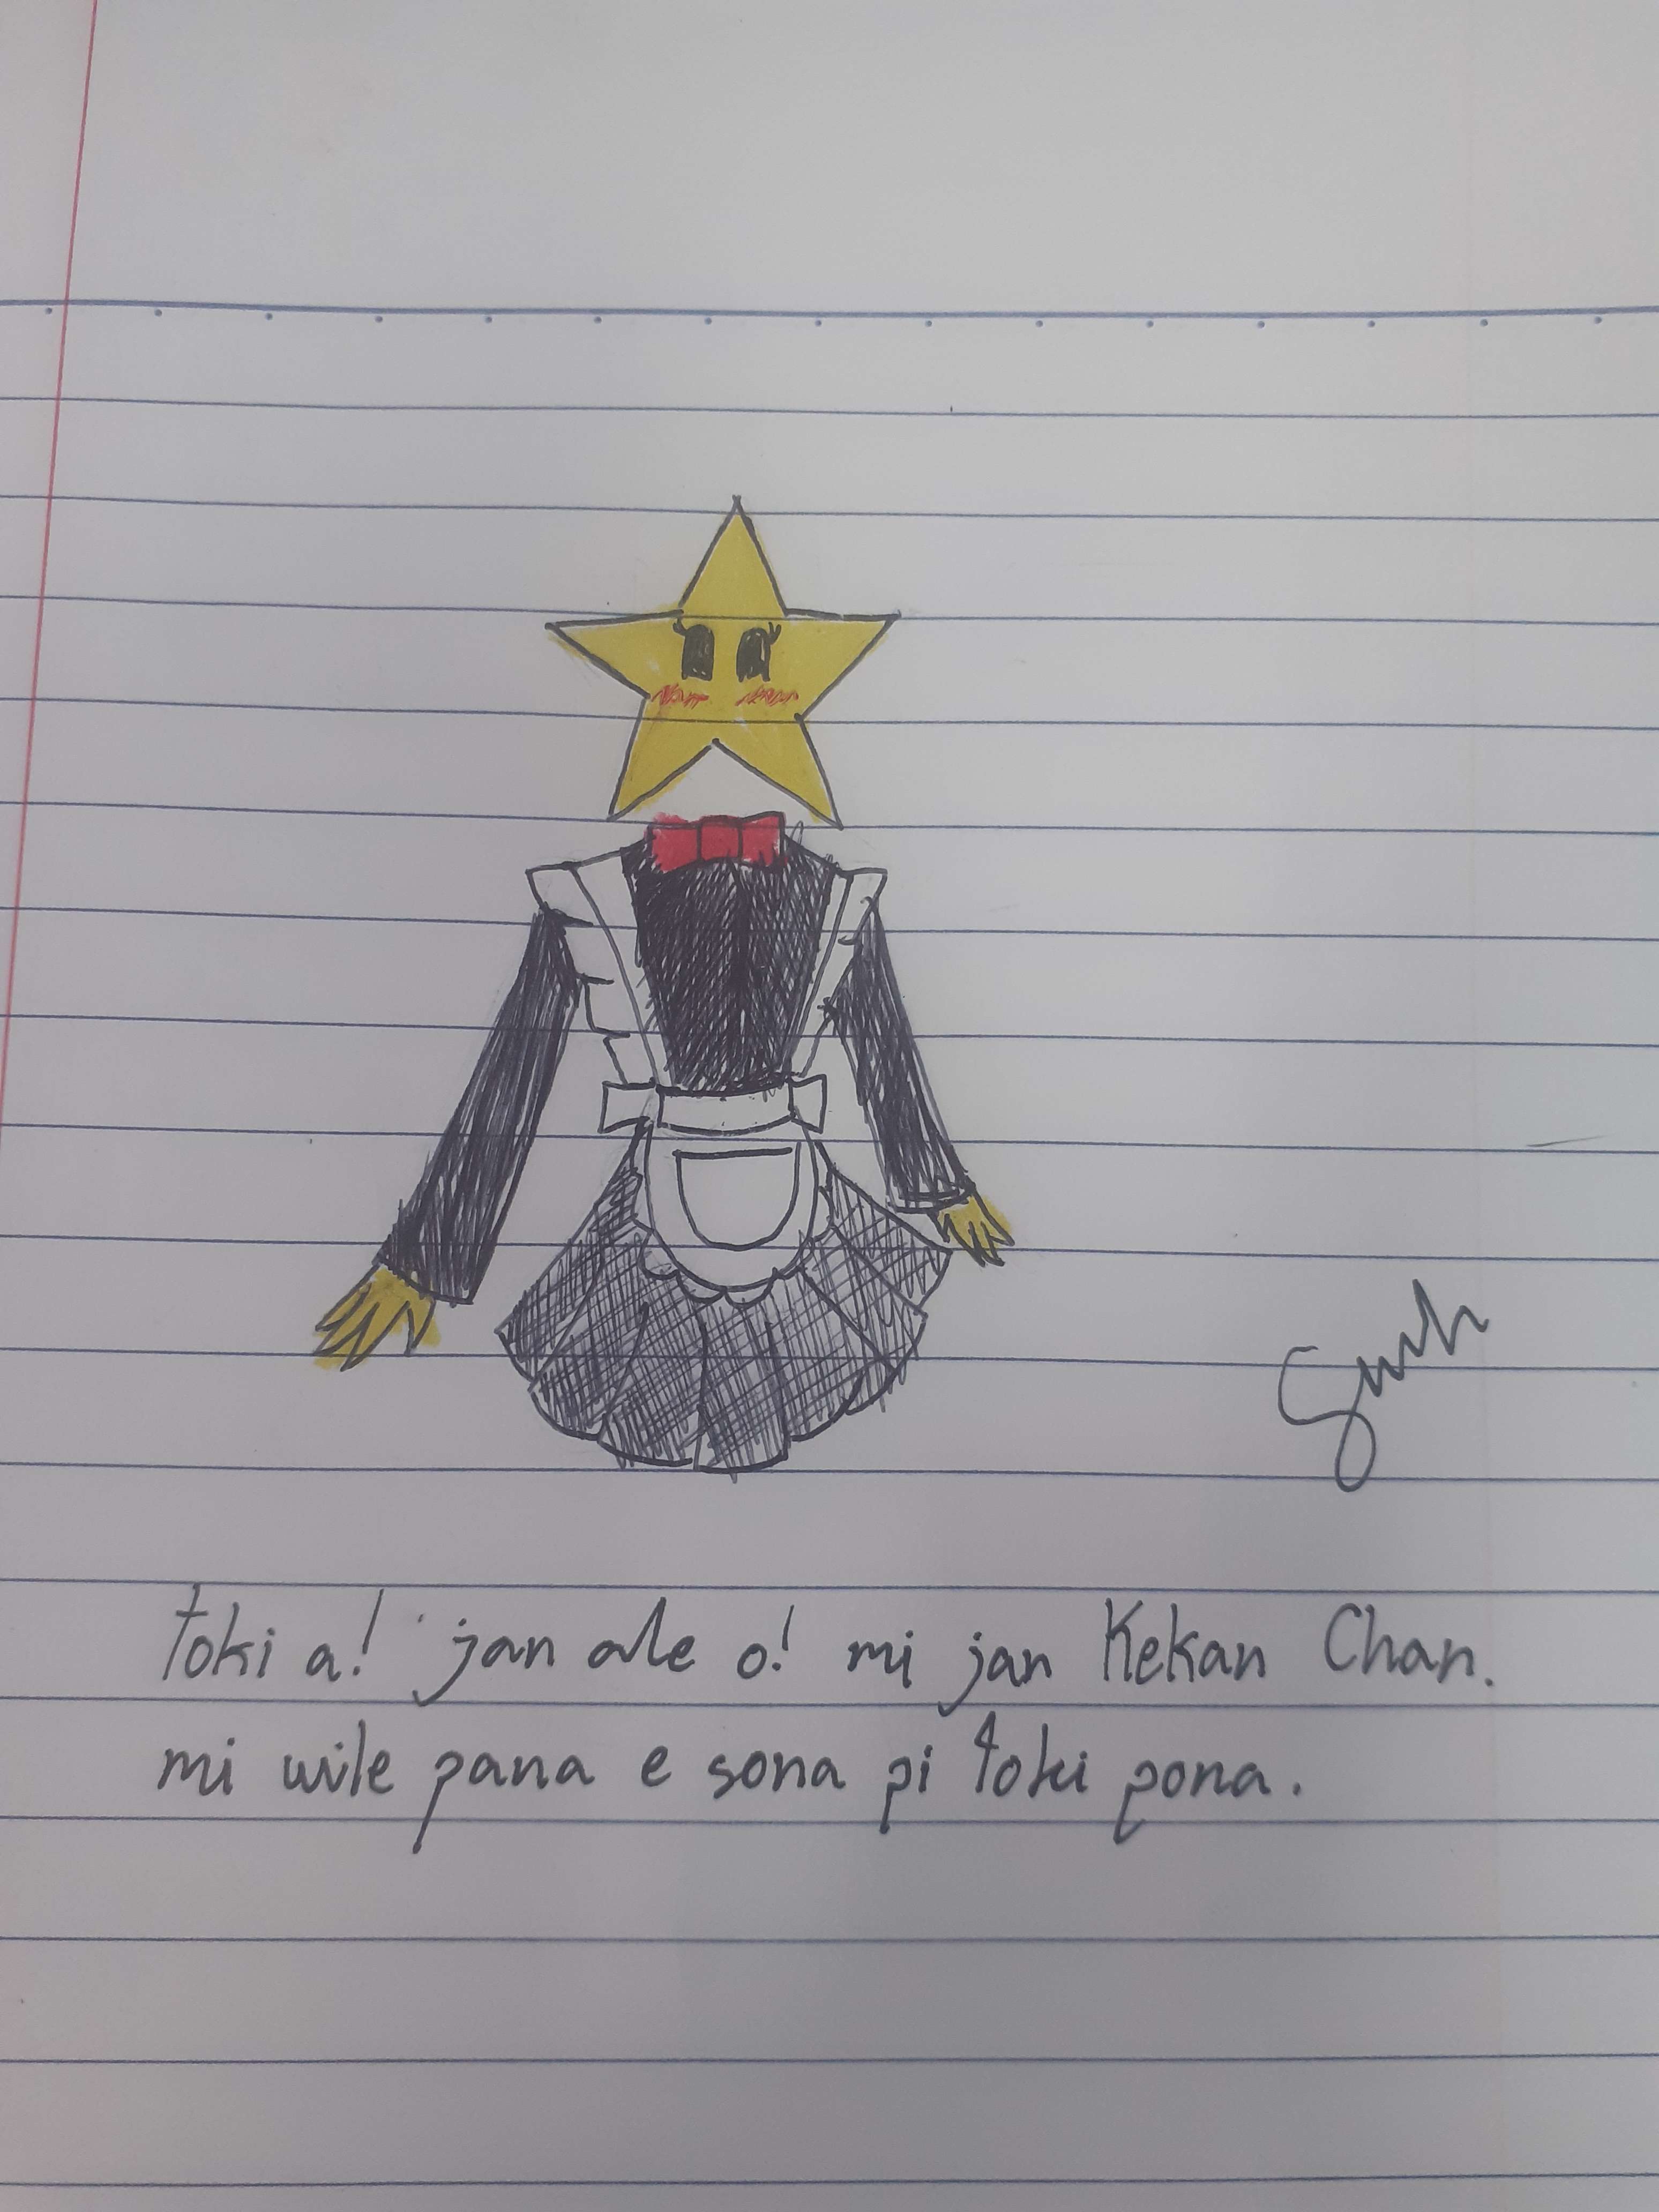 toki a! jan ale o! mi jan Kekan Chan.
mi wile pana e sona pi toki pona.